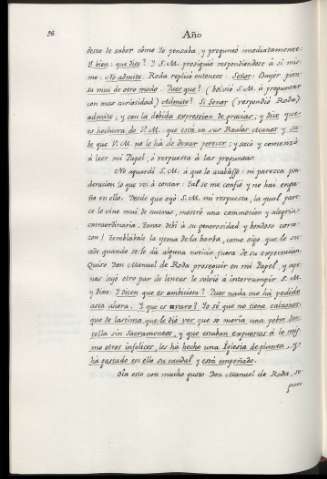 36 Año
deseo de saber cómo lo pensaba, y preguntó immediatamente
Y bien: que dice? Y S.M. prosiguió respondiendose à sí mis-
mo: No admite. Roda replicó entonces: Señor: Bayer pien-
sa mui de otro modo. Pues que? (bolvió S.M. à preguntar
con mas curiosidad) Admite? Sí Señor (respondió Roda)
admite, y con la debida expresion de gracias; y dice que
es hechura de V.M. que está en sus Reales manos y
de que V.M. no le há de dexar perecer: y sacó y comenzó
à leer mi Papel, ó respuesta à las preguntas.
No aguardó S.M. à que le acabasse: ni parezca pon-
deracion lo que voi à contar. Tal se me confió y no han enga-
ña en ello. Desde que oyó S.M. mi respuesta, la qual pare-
ce le vino mui de nuevo, mostró una commocion y alegria
extraordinaria. Tanto debi à su generosidad y bondoso cora-
zon! Temblabale la yema de la barba, como digo que le su-
cede quando se le dá alguna noticia fuera de su expectacion.
Quiso Don Manuel de Roda proseguir en mi Papel, y ape-
nas leyó otro par de lineas le volvió à interrumpir S.M.
y dixo: Y dicen que es ambicioso? Pues nada me há pedido
asta ahora. Y que es avaro? Yo sé que no tiene
que de lastima que le dió ver que se moría una pobre don-
cella sin Sacramentos, y que estaban expuestos à lo mis-
mo otros infelices, les há hecho una Iglesia de planta, y
há gastado en ella su caudal y está empeñado.
Oía esto con mucho gusto Don Manuel de Roda, se